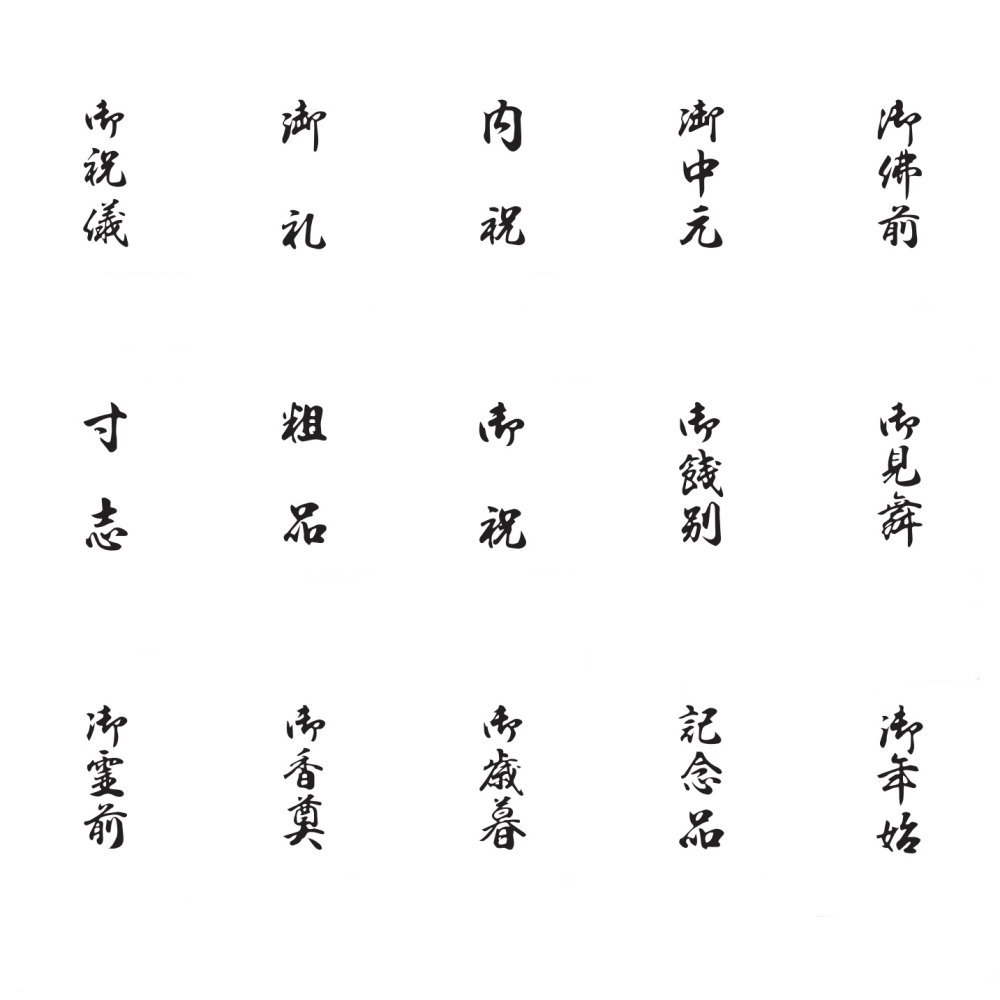 御祝儀
御礼
内祝
御中元
御佛前
寸志
粗品
御祝
御餞別
御見舞
御霊前
御香奠
御歳暮
記念品
御年始